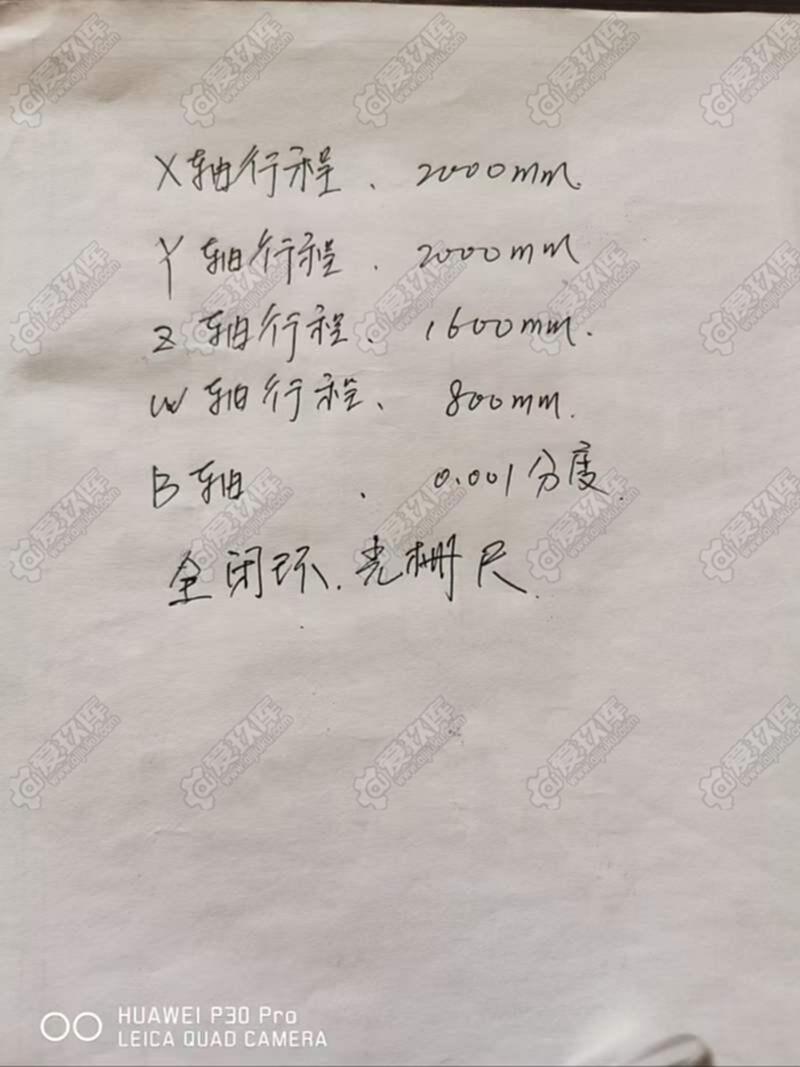 X轴行程、2000mm.
Y轴行程.2000mm
Z轴行程、1600mm.
W轴行程、800mm.
B轴、0.001分度.
全闭环.光栅尺.
HUAWEI P30 Pro
LEICA QUAD CAMERA